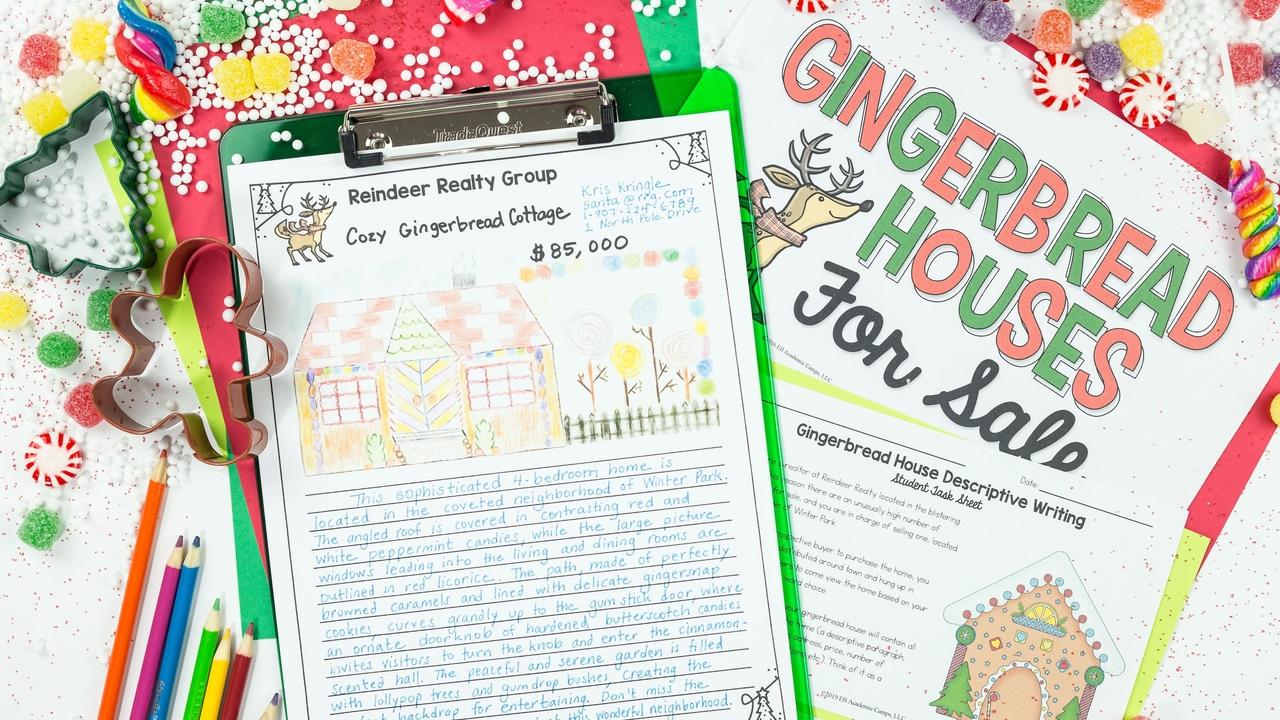 TradeQuest
Reindeer Realty Group
Cozy Gingerbread Cottage
$85,000
Kris Kringle
santa@rrg.com
1 North Pole Drive
This sophisticated 4-bedroom home is
located in the coveted neighborhood of Winter Park.
The angled roof is covered in contrasting red and
white peppermint candies, while the large picture
windows leading into the living and dining rooms are
outlined in red licorice. The path, made of perfectly
browned caramels and lined with delicate gingersnap
cookies, curves grandly up to the gumstick door, where
an ornate doorknob of hardened butterscotch candies
invites visitors to turn the knob and enter the cinnamon-
scented hall. The peaceful and serene garden is filled
with lollypop trees and gumdrop bushes, creating the
backdrop for entertaining. Don't miss the
of this wonderful neighborhood.
GINGERBREAD
HOUSES
For Sale
Academic Camps, LLC
Gingerbread House Descriptive Writing
Student Task Sheet
Date:
realtor at Reindeer Realty located in the blistering
season there are an unusually high number of
sale, and you are in charge of selling one, located
of Winter Park
buyer to purchase the home, you
distributed around town and hung up in
to come view the home based on your
word choice.
gingerbread house will contain all
home (a descriptive paragraph,
address, price, number of
etc.) Think of it as a
©2019 EB Academic Camps, LLC